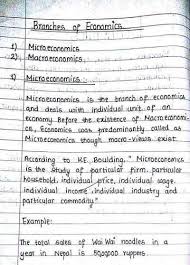 Branches of Economics
1) Microeconomics
2) Macroeconomics
1) Microeconomics
Microeconomics is the branch of economics
and deals with individual unit of an
economy. Before the existence of Macroeconomi-
cs, Economics was predominantly called as
Microeconomics though macro-views exist.
According to K.E. Boulding, "Microeconomics
is the study of particular firm, particular
household, individual price, individual wage,
individual income, individual industry and
particular commodity."
Example:
The total sales of Wai Wai noodles in a
year in Nepal is ruppers.